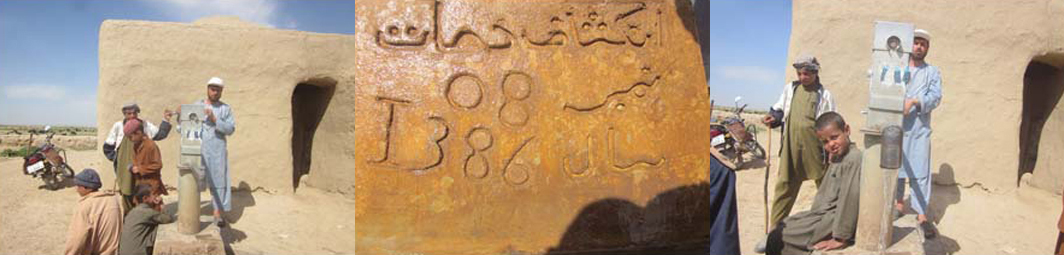 انکشاف دهات
نمبر 08
سال 1386